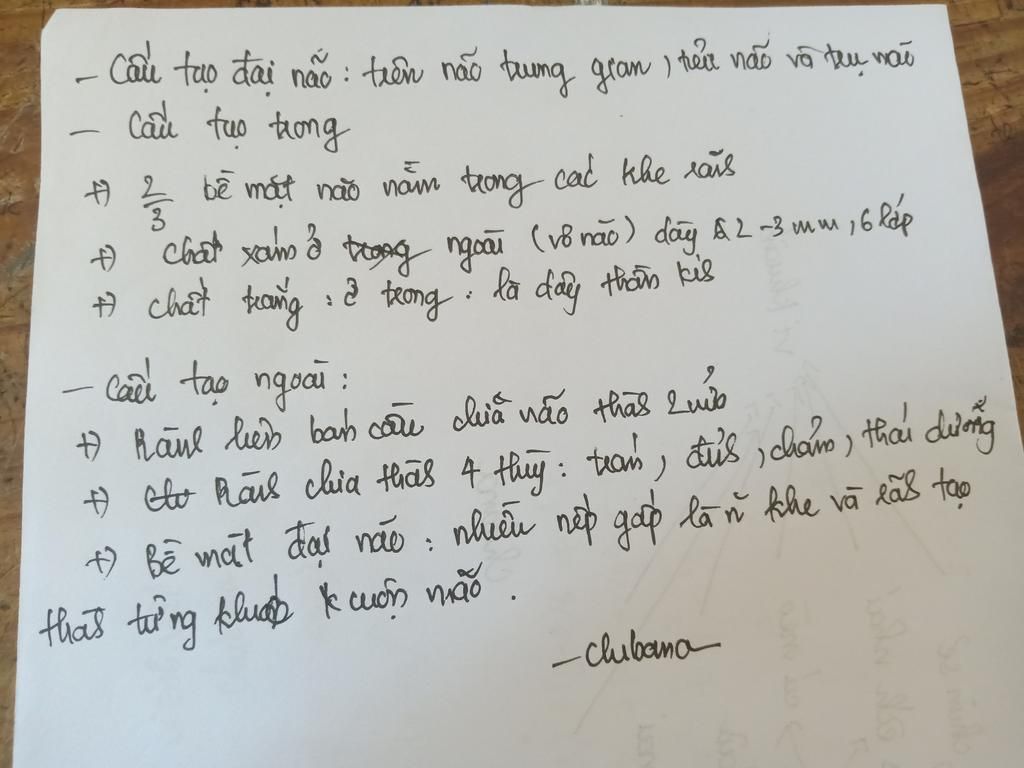 - Cấu tạo đại não: trên não trung gian, tiểu não và trụ não
- Cấu tạo trong
+) 2/3 bề mặt não nằm trong các khe rãnh
+) chất xám ở trong ngoài (vỏ não) dày 2-3mm, 6 lớp
+) chất trắng: ở trong: là dây thần kinh
- Cấu tạo ngoài:
+) Rãnh liên bán cầu chia não thành 2 nửa
+) Rãnh chia thành 4 thùy: trán, đỉnh, chẩm, thái dương
+) Bề mặt đại não: nhiều nếp gấp là khe và rãnh tạo
thành từng khúc cuộn não.
- chibana -